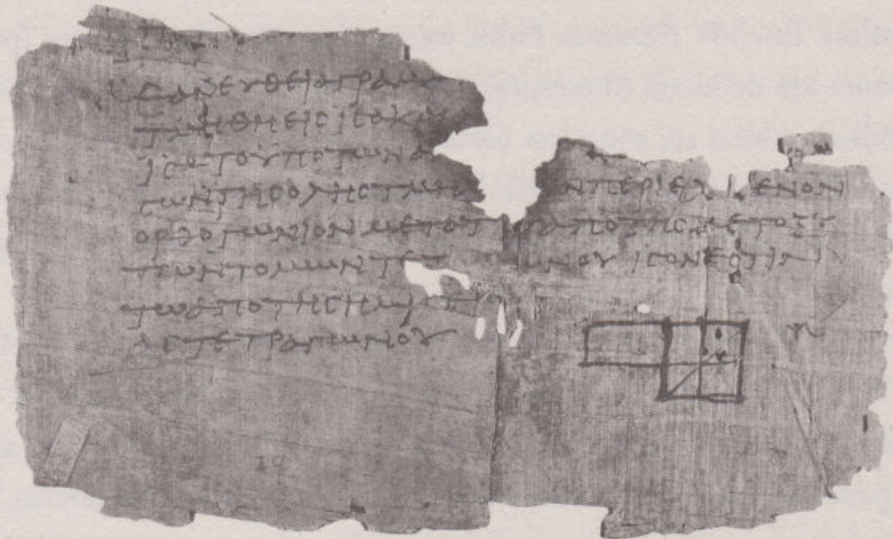 ΕΑΝ ΕΥΘΕΙΑ ΓΡΑΜ
ΤΜΗΘΗ ΕΙϹ ΙϹΑ Κ
ΙϹΑ ΤΟ ΥΠΟ ΤΩΝ Α
ϹΩΝ ΤΗϹ ΟΛΗϹ ΤΜΗΜ ΩΝ ΠΕΡΙΕΧ ΜΕΝΟΝ
ΟΡΘΟΓΩΝΙΟΝ ΜΕΤΑ ΤΟΥ ΑΠΟ ΤΗϹ ΜΕΤΟΞΥ
ΤΩΝ ΤΟΜΩΝ ΤΕΤ ΩΝΟΥ ΙϹΟΝ ΕϹΤΙΝ
ΤΩ ΑΠΟ ΤΗϹ ΗΜΙϹΕΙ
ΑϹ ΤΕΤΡΑΓΩΝΟΥ